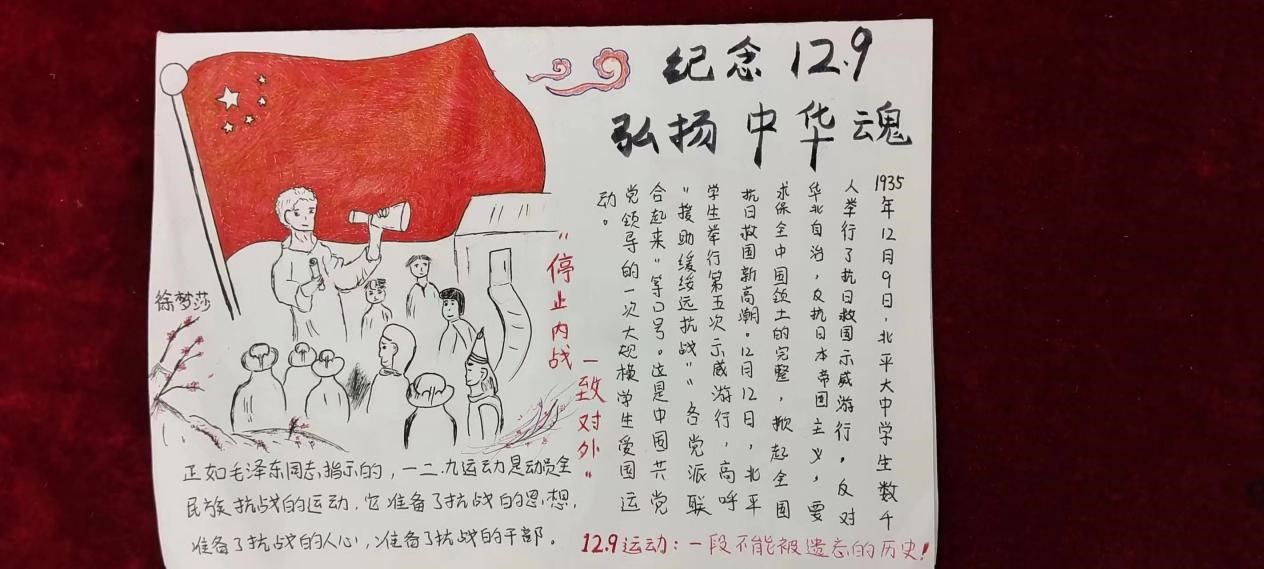 纪念12.9
弘扬中华魂
1935年12月9日，北平大中学生数千
人举行了抗日救国示威游行，反对
华北自治，反抗日本帝国主义，要
求保全中国领土的完整，掀起全国
抗日救国新高潮。12月12日，北平
学生举行第五次示威游行，高呼
“援助绥远抗战”“各党派联
合起来”等口号。这是中国共产党
党领导的一次大规模学生爱国运
动。
“停止内战
一致对外”
徐梦莎
正如毛泽东同志指示的，一二.九运动是动员全
民族抗战的运动，它准备了抗战的思想，
准备了抗战的人心，准备了抗战的干部。
12.9运动：一段不能被遗忘的历史！